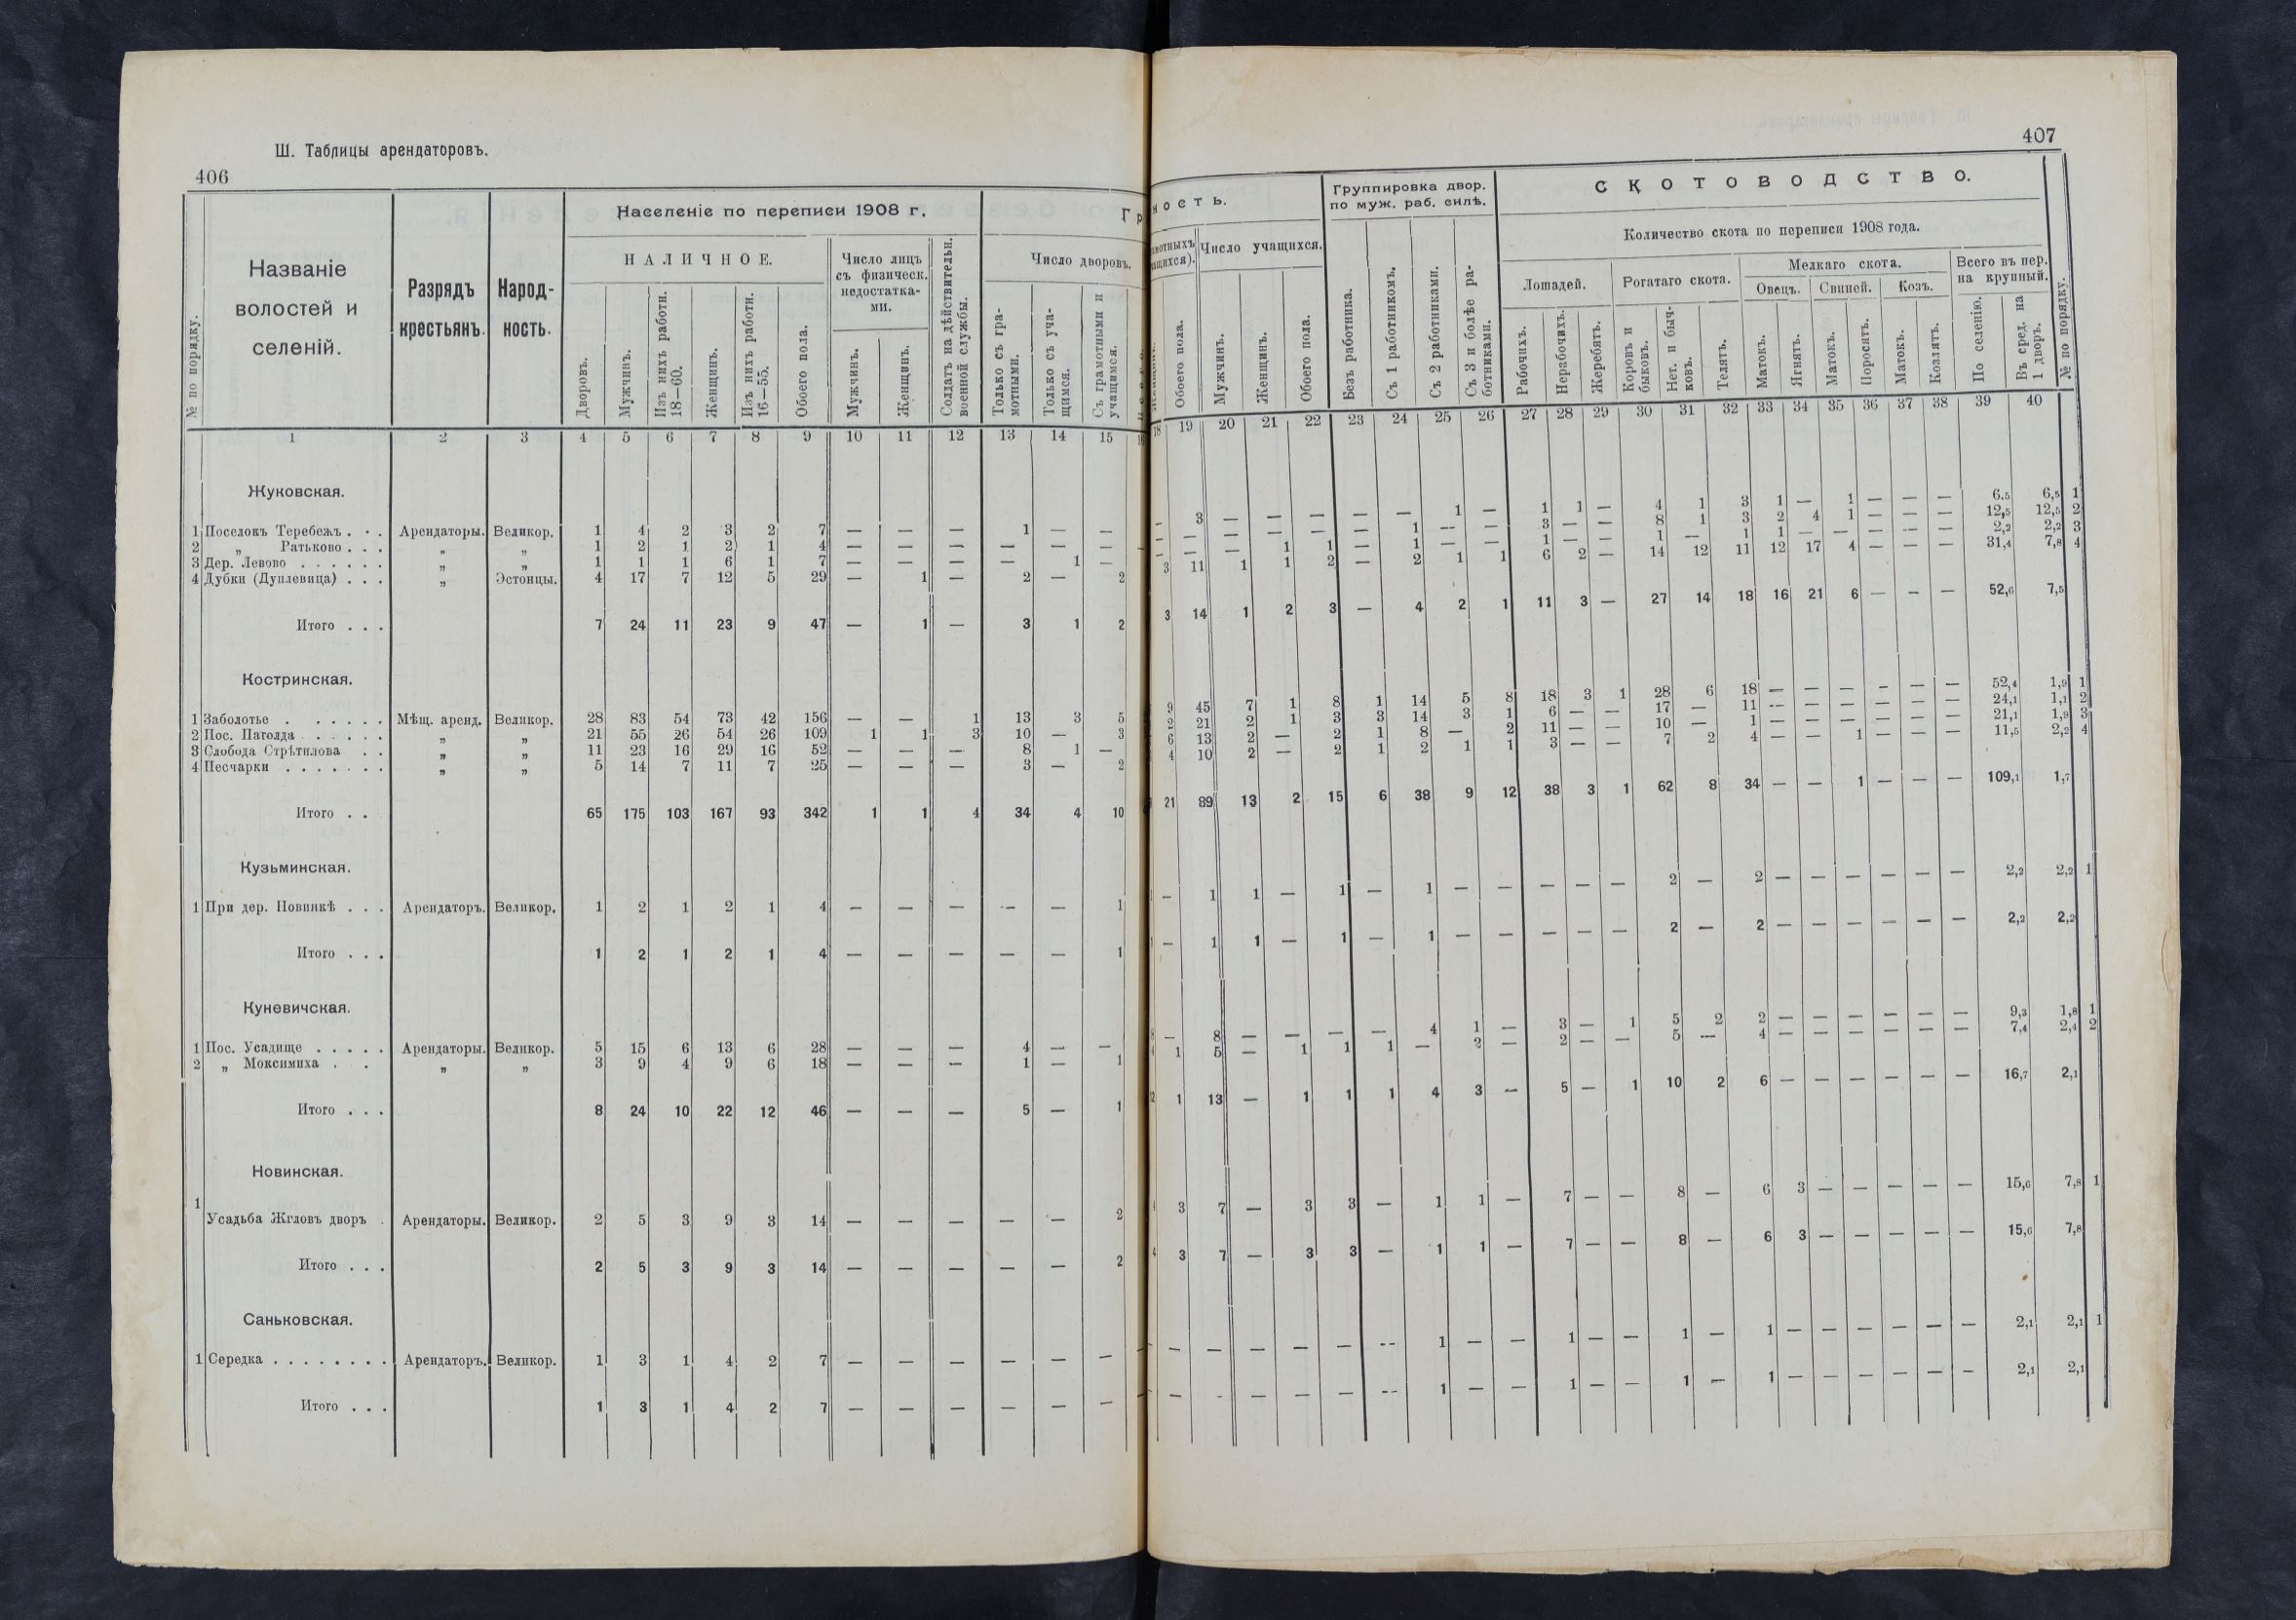 Ш. Таблицы арендаторовъ.
406
№ по порядку.
Названіе волостей и селеній.
Разрядъ крестьянъ.
Народность.
Населеніе по переписи 1908 г.
НАЛИЧНОЕ.
Дворовъ.
Мужчинъ.
Изъ нихъ работн. 18—60.
Женщинъ.
Изъ нихъ работн. 16—55.
Обоего пола.
Число лицъ съ физическ. недостатками.
Мужчинъ.
Женщинъ.
Солдатъ на дѣйствительн. военной службы.
Гр
Число дворовъ.
Только съ грамотными.
Только съ учащимся.
Съ грамотными и учащимся.
1 2 3 4 5 6 7 8 9 10 11 12 13 14 15
Жуковская.
1 Поселокъ Теребежъ . . . Арендаторы. Великор. 1 4 2 3 2 7 — — — 1 — —
2 „ Ратьково . . . „ „ 1 2 1 2 1 4 — — — — — —
3 Дер. Левово . . . . . . „ „ 1 1 1 6 1 7 — — — — 1 —
4 Дубки (Дуплевица) . . . „ Эстонцы. 4 17 7 12 5 29 — 1 — 2 — 2
Итого . . . 7 24 11 23 9 47 — 1 — 3 1 2
Костринская.
1 Заболотье . . . . . . Мѣщ. аренд. Великор. 28 83 54 73 42 156 — — 1 13 3 5
2 Пос. Паголда . . . . . „ „ 21 55 26 54 26 109 1 1 3 10 — 3
3 Слобода Стрѣтилова . . „ „ 11 23 16 29 16 52 — — — 8 1 —
4 Песчарки . . . . . . . „ „ 5 14 7 11 7 25 — — — 3 — 2
Итого . . 65 175 103 167 93 342 1 1 4 34 4 10
Кузьминская.
1 При дер. Новинкѣ . . . Арендаторъ. Великор. 1 2 1 2 1 4 — — — — — 1
Итого . . . 1 2 1 2 1 4 — — — — — 1
Куневичская.
1 Пос. Усадище . . . . . Арендаторы. Великор. 5 15 6 13 6 28 — — — 4 — —
2 „ Моксимиха . . „ „ 3 9 4 9 6 18 — — — 1 — 1
Итого . . . 8 24 10 22 12 46 — — — 5 — 1
Новинская.
1 Усадьба Жгловъ дворъ . Арендаторы. Великор. 2 5 3 9 3 14 — — — — — 2
Итого . . . 2 5 3 9 3 14 — — — — — 2
Саньковская.
1 Середка . . . . . . . . Арендаторъ. Великор. 1 3 1 4 2 7 — — — — — —
Итого . . . 1 3 1 4 2 7 — — — — — —
407
ность.
Обоего пола.
Число учащихся.
Мужчинъ.
Женщинъ.
Обоего пола.
Группировка двор. по муж. раб. силѣ.
Безъ работника.
Съ 1 работникомъ.
Съ 2 работниками.
Съ 3 и болѣе работниками.
СКОТОВОДСТВО.
Количество скота по переписи 1908 года.
Лошадей.
Рабочихъ.
Нерабочихъ.
Жеребятъ.
Рогатаго скота.
Коровъ и быковъ.
Нет. и бычковъ.
Телятъ.
Мелкаго скота.
Овецъ.
Матокъ.
Ягнятъ.
Свиней.
Матокъ.
Поросятъ.
Козъ.
Матокъ.
Козлятъ.
Всего въ пер. на крупный.
По селенію.
Въ сред. на 1 дворъ.
№ по порядку.
18 19 20 21 22 23 24 25 26 27 28 29 30 31 32 33 34 35 36 37 38 39 40
— 3 — — — — — 1 — 1 1 — 4 1 3 1 — 1 — — — 6,5 6,5 1
— — — — — — 1 — — 3 — — 8 1 3 2 4 1 — — — 12,5 12,5 2
— — — 1 1 — 1 — — 1 — — 1 — 1 1 — — — — — 2,2 2,2 3
3 11 1 1 2 — 2 1 1 6 2 — 14 12 11 12 17 4 — — — 31,4 7,8 4
3 14 1 2 3 — 4 2 1 11 3 — 27 14 18 16 21 6 — — — 52,6 7,5
9 45 7 1 8 1 14 5 8 18 3 1 28 6 18 — — — — — — 52,4 1,9 1
2 21 2 1 3 3 14 3 1 6 — — 17 — 11 — — — — — — 24,1 1,1 2
6 13 2 — 2 1 8 — 2 11 — — 10 — 1 — — — — — — 21,1 1,9 3
4 10 2 — 2 1 2 1 1 3 — — 7 2 4 — — 1 — — — 11,5 2,2 4
21 89 13 2 15 6 38 9 12 38 3 1 62 8 34 — — 1 — — — 109,1 1,7
— 1 1 — 1 — 1 — — — — — 2 — 2 — — — — — — 2,2 2,2 1
— 1 1 — 1 — 1 — — — — — 2 — 2 — — — — — — 2,2 2,2
— 8 — — — — 4 1 — 3 — 1 5 2 2 — — — — — — 9,3 1,8 1
1 5 — 1 1 1 — 2 — 2 — — 5 — 4 — — — — — — 7,4 2,4 2
1 13 — 1 1 1 4 3 — 5 — 1 10 2 6 — — — — — — 16,7 2,1
3 7 — 3 3 — 1 1 — 7 — — 8 — 6 3 — — — — — 15,6 7,8 1
3 7 — 3 3 — 1 1 — 7 — — 8 — 6 3 — — — — — 15,6 7,8
— — — — — -- 1 — — 1 — — 1 — 1 — — — — — — 2,1 2,1 1
— - — — — -- 1 — — 1 — — 1 — 1 — — — — — — 2,1 2,1